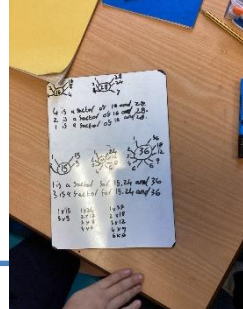 16
28
4 is a factor of 16 and 28.
2 is a factor of 16 and 28.
1 is a factor of 16 and 28.
15
24
36
1 is a factor for 15, 24 and 36
3 is a factor for 15, 24 and 36
1 x 15 1 x 24 1 x 36
3 x 5 2 x 12 2 x 18
3 x 8 3 x 12
4 x 6 4 x 9
6 x 6